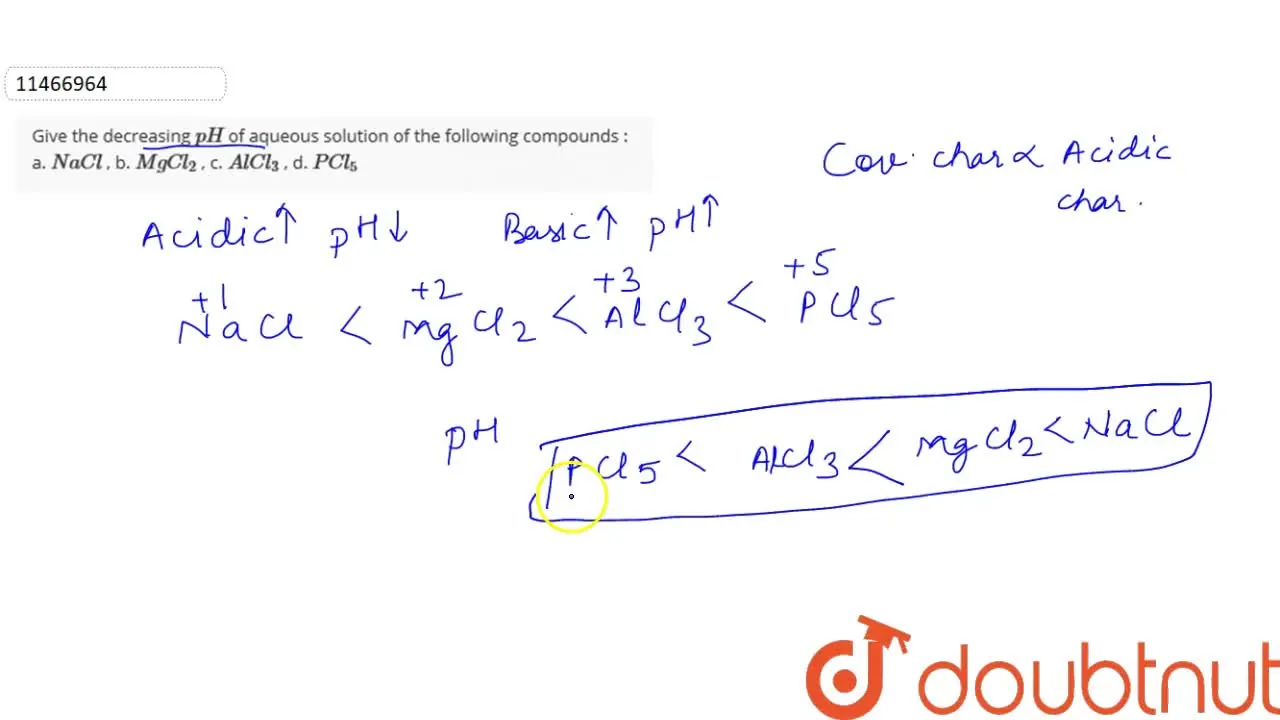 11466964
Give the decreasing pH of aqueous solution of the following compounds :
a. NaCl , b. MgCl₂ , c. AlCl₃ , d. PCl₅
Cov. char ∝ Acidic
char.
Acidic↑ pH↓ Basic↑ pH↑
+1 +2 +3 +5
NaCl < MgCl₂ < AlCl₃ < PCl₅
pH PCl₅ < AlCl₃ < MgCl₂ < NaCl
doubtnut